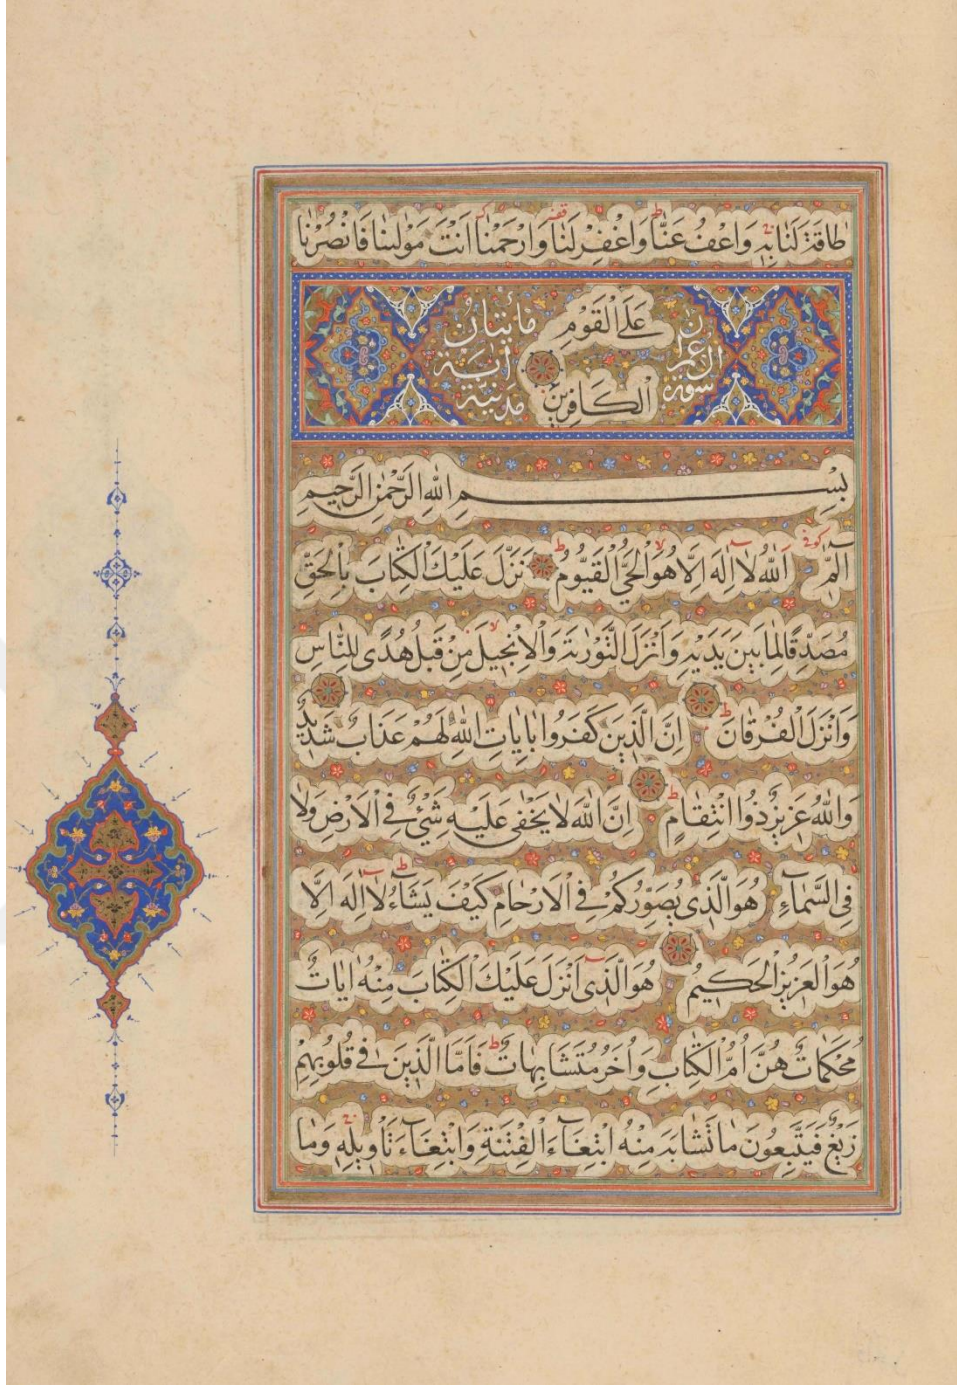 طَاقَةَ لَنَا بِهِ وَاعْفُ عَنَّا وَاغْفِرْ لَنَا وَارْحَمْنَا اَنْتَ مَوْلٰينَا فَانْصُرْنَا
سورة ال عمران عَلَى الْقَوْمِ الْكَافِرِينَ مائتان اية مدنية
بِسْمِ اللّٰهِ الرَّحْمٰنِ الرَّحِيمِ
الٓمٓ اَللّٰهُ لَا اِلٰهَ اِلَّا هُوَ الْحَيُّ الْقَيُّومُ نَزَّلَ عَلَيْكَ الْكِتَابَ بِالْحَقِّ
مُصَدِّقًا لِمَا بَيْنَ يَدَيْهِ وَاَنْزَلَ التَّوْرٰيةَ وَالْاِنْجِيلَ مِنْ قَبْلُ هُدًى لِلنَّاسِ
وَاَنْزَلَ الْفُرْقَانَ اِنَّ الَّذِينَ كَفَرُوا بِاٰيَاتِ اللّٰهِ لَهُمْ عَذَابٌ شَدِيدٌ
وَاللّٰهُ عَزِيزٌ ذُوا انْتِقَامٍ اِنَّ اللّٰهَ لَا يَخْفٰى عَلَيْهِ شَيْئٌ فِي الْاَرْضِ وَلَا
فِي السَّمَآءِ هُوَ الَّذِى يُصَوِّرُكُمْ فِي الْاَرْحَامِ كَيْفَ يَشَآءُ لَا اِلٰهَ اِلَّا
هُوَ الْعَزِيزُ الْحَكِيمُ هُوَ الَّذِى اَنْزَلَ عَلَيْكَ الْكِتَابَ مِنْهُ اٰيَاتٌ
مُحْكَمَاتٌ هُنَّ اُمُّ الْكِتَابِ وَاُخَرُ مُتَشَابِهَاتٌ فَاَمَّا الَّذِينَ فِي قُلُوبِهِمْ
زَيْغٌ فَيَتَّبِعُونَ مَا تَشَابَهَ مِنْهُ ابْتِغَآءَ الْفِتْنَةِ وَابْتِغَآءَ تَاْوِيلِهِ وَمَا